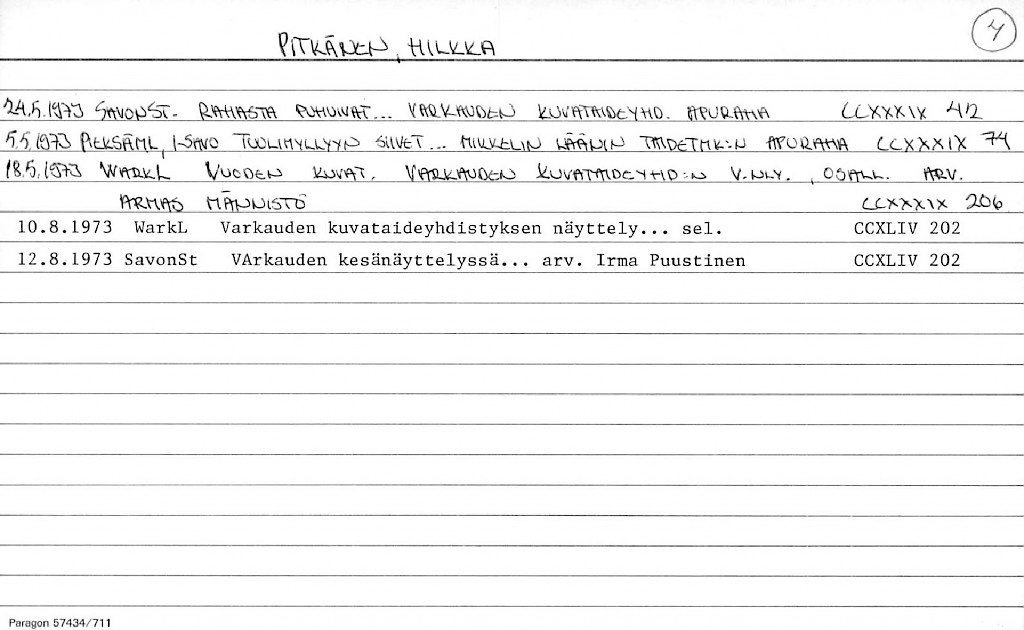 4
PITKÄNEN, HILKKA
24.5.1973 SAVONST. RAHASTA PUHUIVAT... VARKAUDEN KUVATAIDEYHD. APURAHA CCXXXIX 412
5.5.1973 PIEKSÄML, I-SAVO TUULIMYLLYYN SIIVET... MIKKELIN LÄÄNIN TAIDETMK:N APURAHA CCXXXIX 74
18.5.1973 WARKL VUODEN KUVAT. VARKAUDEN KUVATAIDEYHD:N V.NLY., OSALL. ARV.
ARMAS MÄNNISTÖ CCXXXIX 206
10.8.1973 WarkL Varkauden kuvataideyhdistyksen näyttely... sel. CCXLIV 202
12.8.1973 SavonSt VArkauden kesänäyttelyssä... arv. Irma Puustinen CCXLIV 202
Paragon 57434/711